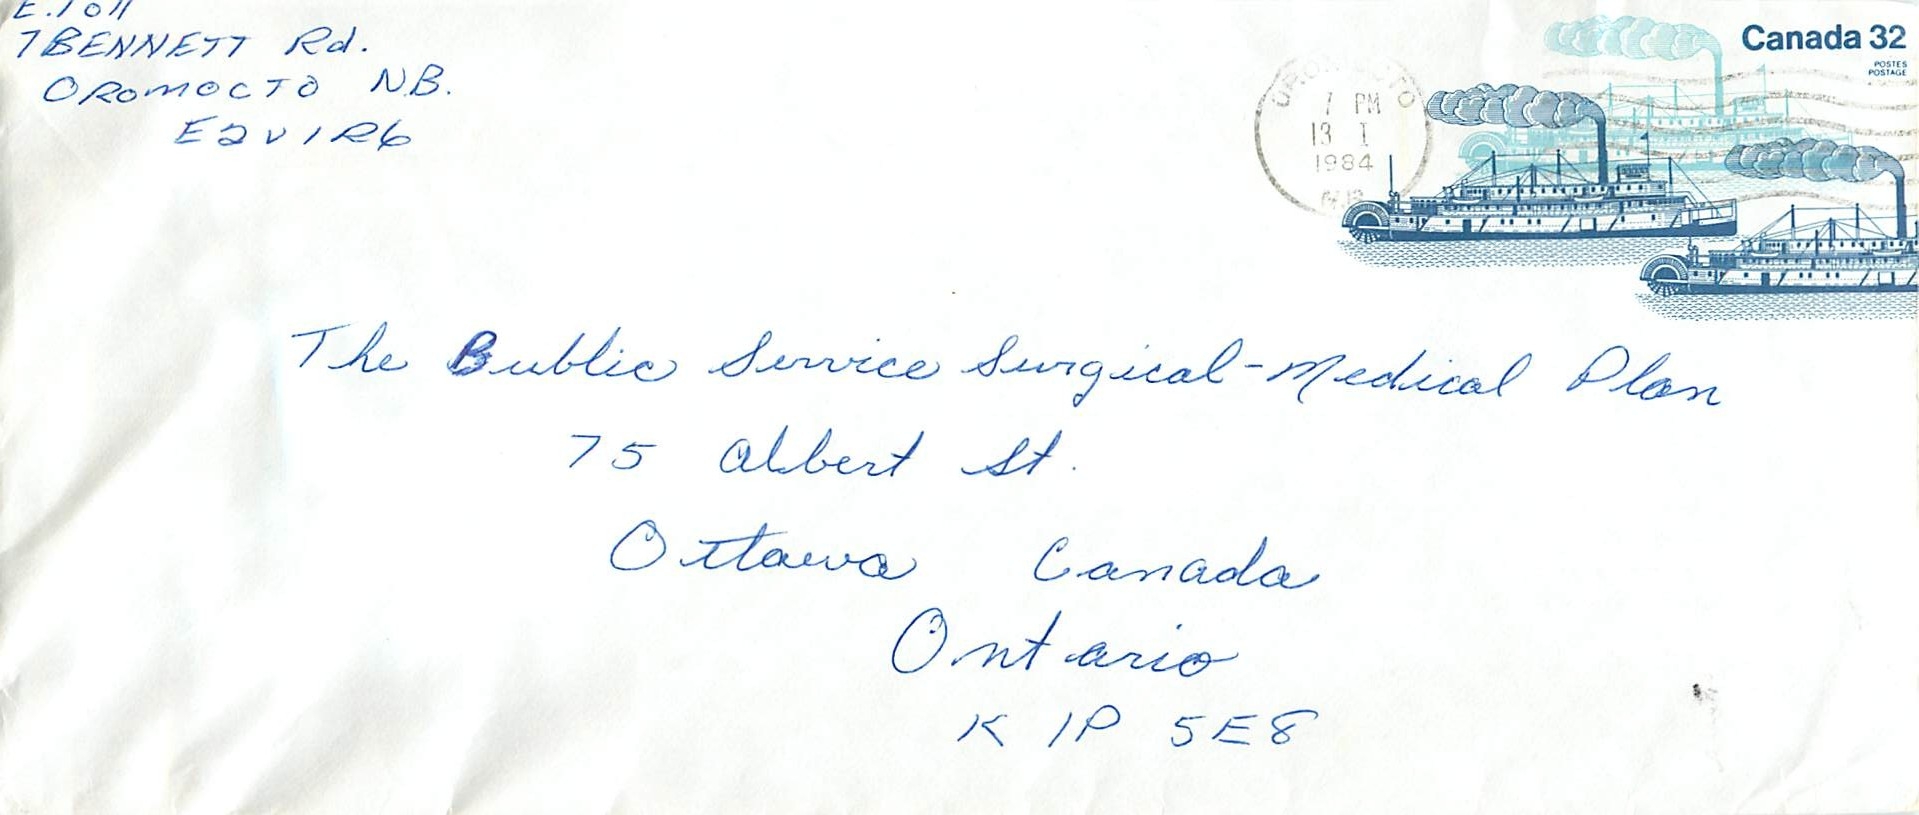 7 BENNETT Rd.
OROMOCTO N.B.
E2V 1R6
Canada 32
POSTES
POSTAGE
OROMOCTO
7 PM
13 I
1984
N.B.
The Public Service Surgical-Medical Plan
75 Albert St.
Ottawa Canada
Ontario
K1P 5E8